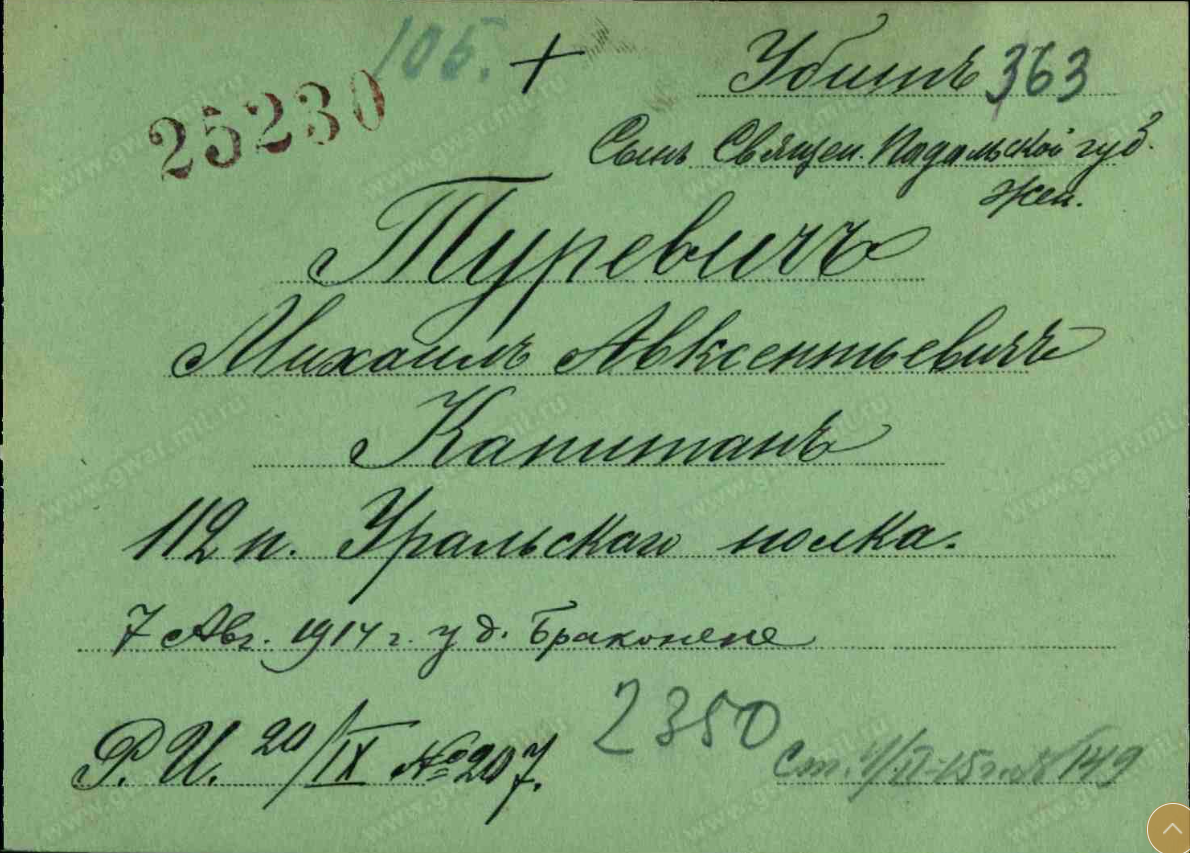 105. + Убитъ 363
25230
Сынъ Священ. Подольской губ.
Жен.
Туревичъ
Михаилъ Авксентьевичъ
Капитанъ
112 п. Уральскаго полка.
7 Авг. 1914 г. у д. Браконене
Р.И. 20/IX № 207.
2350
149
www.gwar.mil.ru